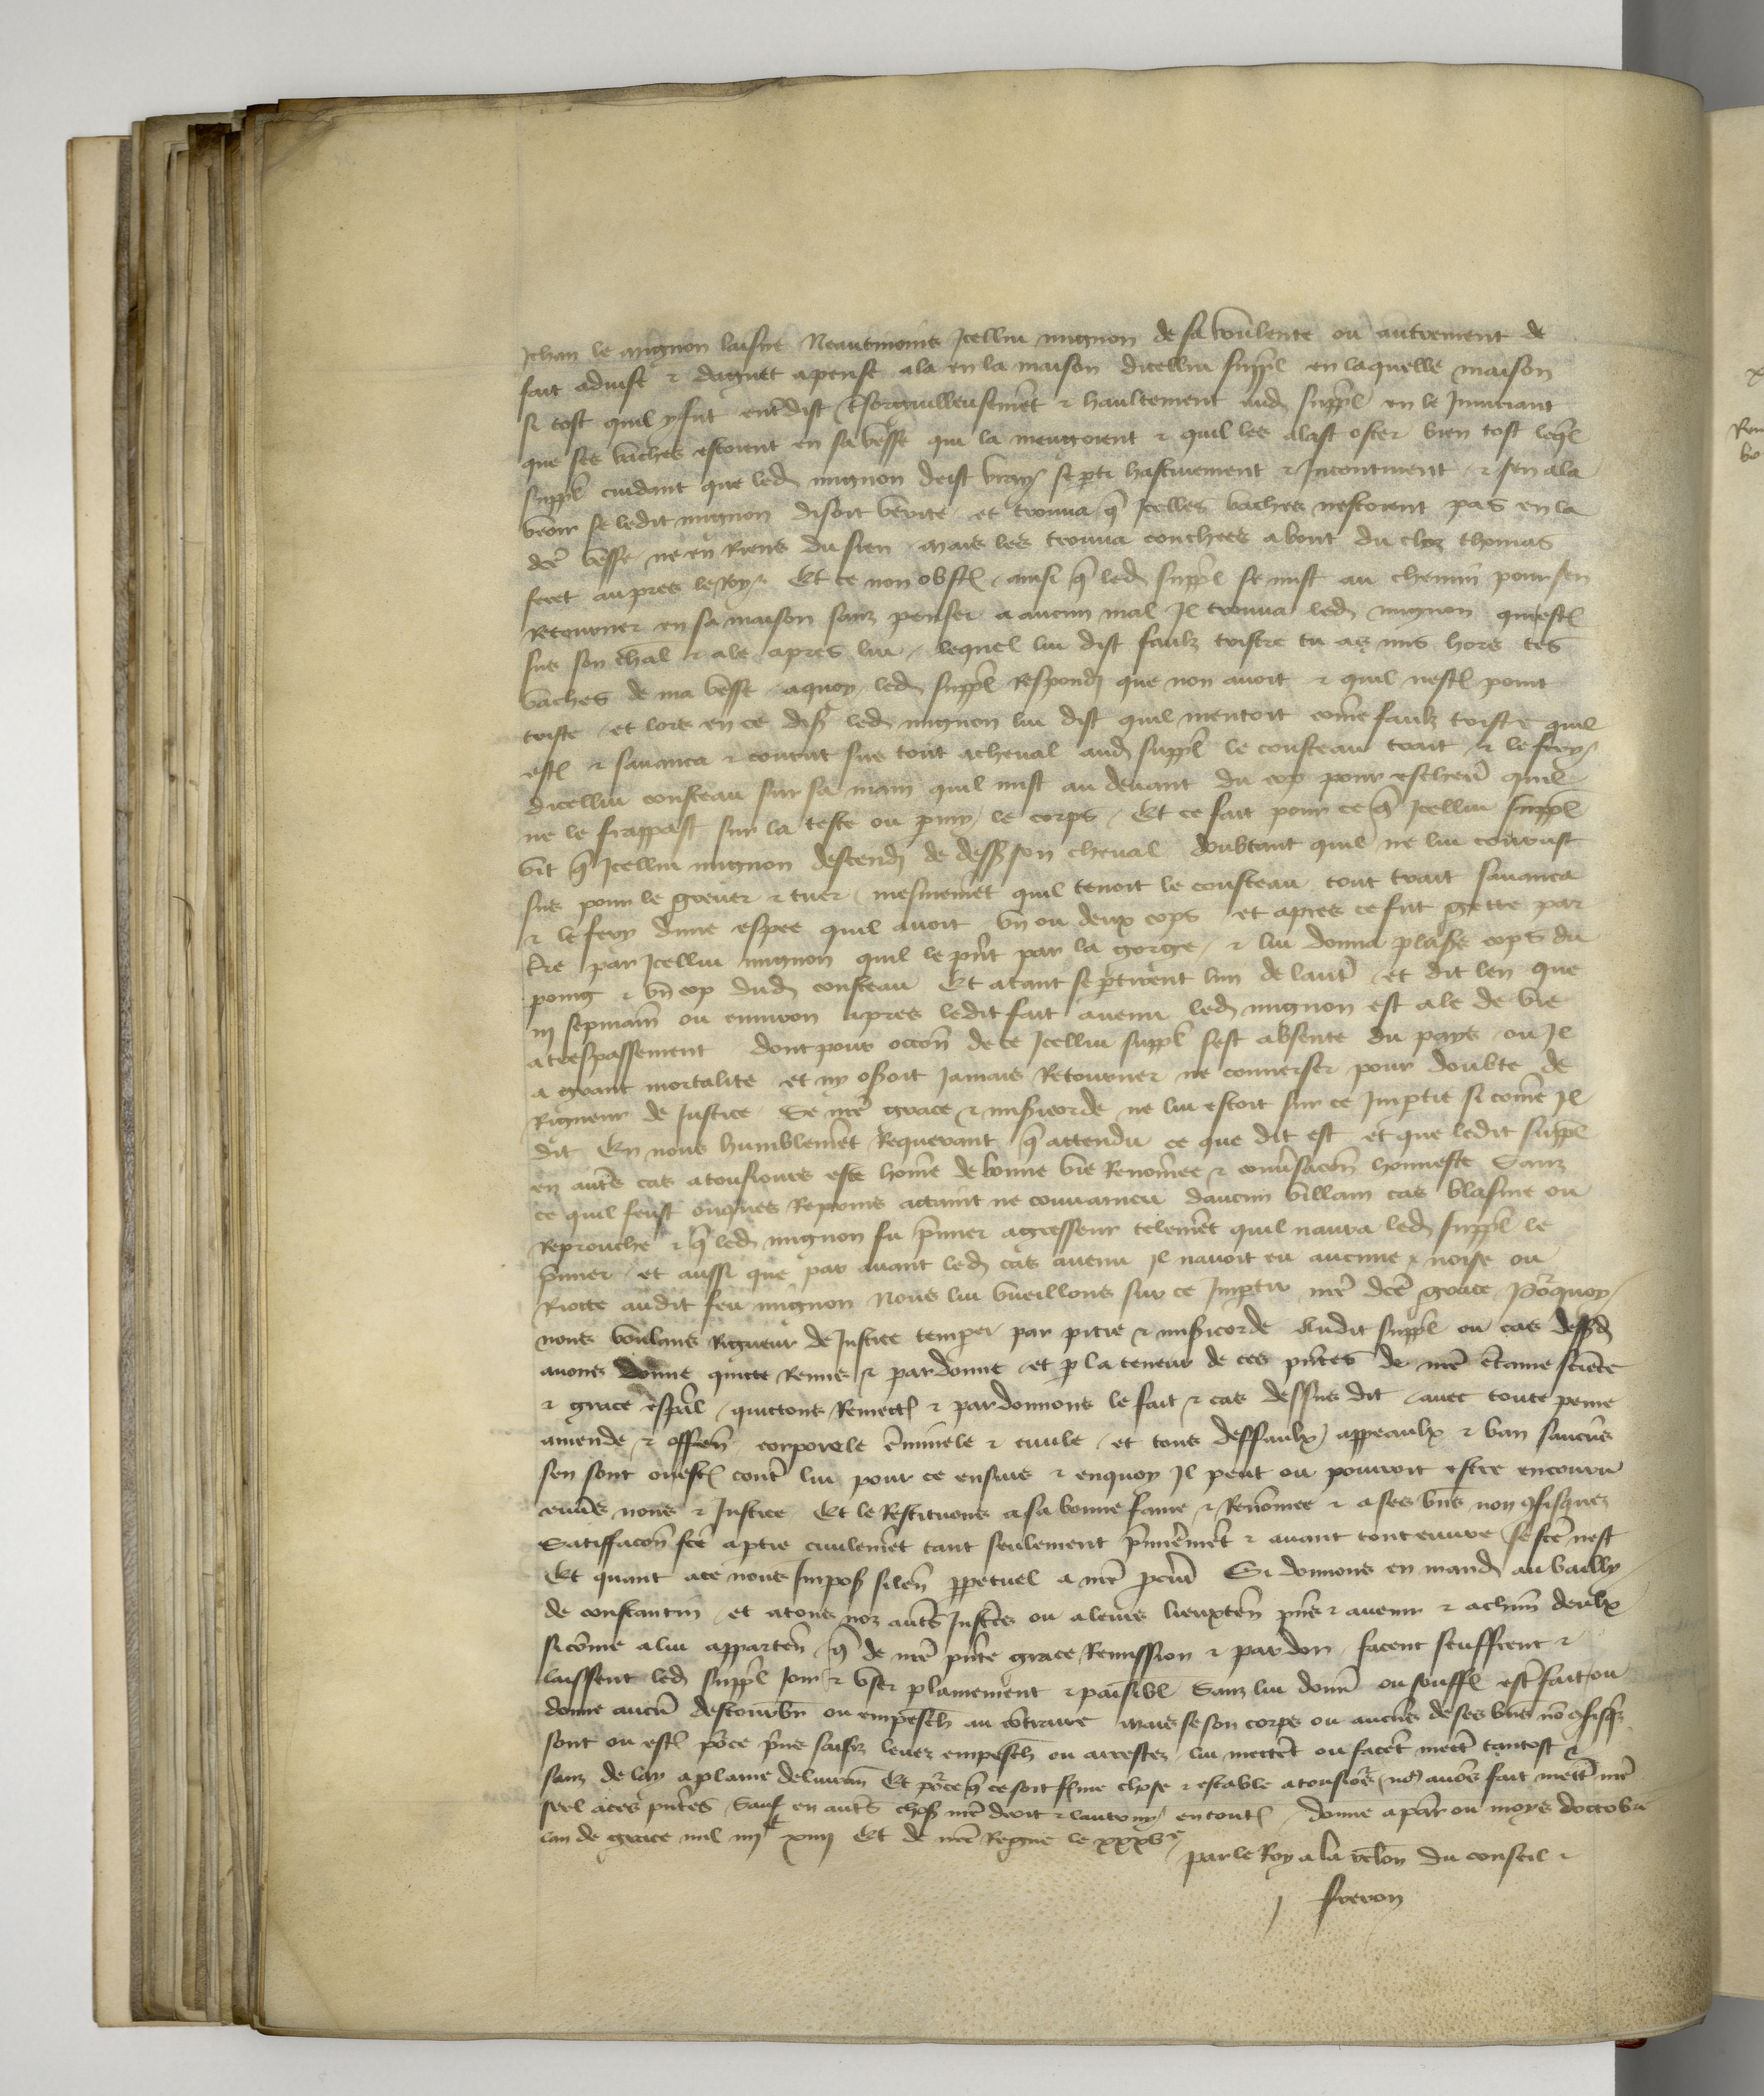 Jehan le mignon laisne Neantmoins Icellui mignon de sa voulente ou autrement de
fait advise & daguet apense ala en la maison dicellui suppl en laquelle maison
si tost quil y fut entre dist orguilleusemēt & haultement aud suppl en le Iniuriant
que ses vaches estoient en sa vesse qui la mengoient & quil les alast oster bien tost leql
suppl cuidant que led mignon deist vray se pti hastivement & Incontinent & sen ala
veoir se ledit mignon disoit verite et trouva q̄ Icelles vaches nestoient pas en la
dcē vesse ne en Riens du sien mais les trouva couchees about du cloz thomas
feret aupres le Roy Et ce non obst ainsi q̄ led suppl se mist au chemin pour sen
Retourner en sa maison sanz penser a aucun mal Il trouva led mignon qui est
sus son chal & ale apres lui lequel lui dist faulz tristre tu as mis hors tes
vaches de ma vesse aquoy led suppl Respondi que non avoit & quil nest point
triste et lors en ce dis led mignon lui dist quil mentoit cōme faulz tristre quil
est & savanca & courut sus tout acheval aud suppl le cousteau trait & le fery
dicellui cousteau sur sa main quil mist au devant du cop pour eschevr̄ quil
ne le frappast sur la teste ou pmy le corps Et ce fait pour ce q̄ Icellui suppl
vit q̄ Icellui mignon descendi de dess son cheval doubtant quil ne lui courust
sus pour le grever & tuer mesmemēt quil tenoit le cousteau tout trait savanca
& le fery dune espee quil avoit vn ou deux cops et apres ce fut gette par
tre par Icellui mignon quil le prīt par la gorge & lui donna plus cops du
poing & vn cop dud cousteau Et atant se ptirent lun de lautr̄ et dit len que
iij sepmain̄ ou environ apres ledit fait avenu led mignon est ale de vie
a trespassement dont pour occon̄ de ce Icellui suppl sest absente du pays ou Il
a grant mortalite et ny oseroit Jamais Retourner ne converser pour doubte de
Rigueur de Justice Se nrē grace & misīcorde ne lui estoit sur ce Impartie si cōme Il
dit En nous humblemēt Requerant q̄ attendu ce que dit est et que ledit suppl
en autr̄s cas a tousiours este hōme de bonne vie Renōmee & cōversacōn honneste Sanz
ce quil feust onques Repris actaint ne convaincu daucun villain cas blasme ou
Reprouche & q̄ led mignon fu pmier agresseur telemēt quil navra led suppl le
pmier et aussi que par avant led cas avenu Il navoit eu aucune noise ou
Riotte audit feu mignon Nous lui vueillons sur ce Impartir nrē dcē grace Pourquoy
nous voulans Rigueur de Justice temper par pitie & misicorde Audit suppl ou cas dessd
avons donne quitte Remis & pardonne et p la teneur de ces pn̄tes de nrē ctaine sciēce
& grace espāl quictons Remect & pardonnons le fait & cas dessus dit avec toute peine
amende & offen̄ corporele cīminele & civile et tous deffaulx appeaulx & ban saucūs
sen sont ou est contr̄ lui pour ce ensuis & enquoy Il peut ou pourroit estre encouru
envs̄ nous & Justice Et le Restituons a sa bonne fame & Renōmee & a ses bn̄s non cōfisquez
Satisffacōn fcē a ptie civilemēt tant seulement pmieremēt & avant tout euvre se fcē nest
Et quant ace nous Impos silen̄ ppetuel a nrē pcur̄ Si donnons en mand au bailly
de constantin et atous noz autr̄s Justic̄s ou aleurs lieuxten̄ pn̄s & avenir & achūn deulx
si cōme a lui apparten̄ q̄ de nrē pn̄te grace Remission & pardon facent seuffrent &
laissent led suppl Joir & vser plainement & paisibl Sanz lui donn̄ ou souff estr̄ fait ou
donne aucū destourbr̄ ou empesch au cōtraire mais se son corps ou aucūs de ses bn̄s nō cōfisqz
sont ou est pource pn̄s saisiz levez empesch ou arrestez lui mettēt ou facēt mectr̄ tantost &
sanz delay a plaine delivran̄ Et pource q̄ ce soit ferme chose & estable a tousiors nous avōs fait mettr̄ nrē
seel aces pn̄tes Sauf en autr̄s chos nrē droit & lautruy en tout Donne a par̄ ou moys doctobr̄
lan de grace mil iiijc xiiij Et de nrē Regne le xxxve
par le Roy a la relōn du conseil &
J freron